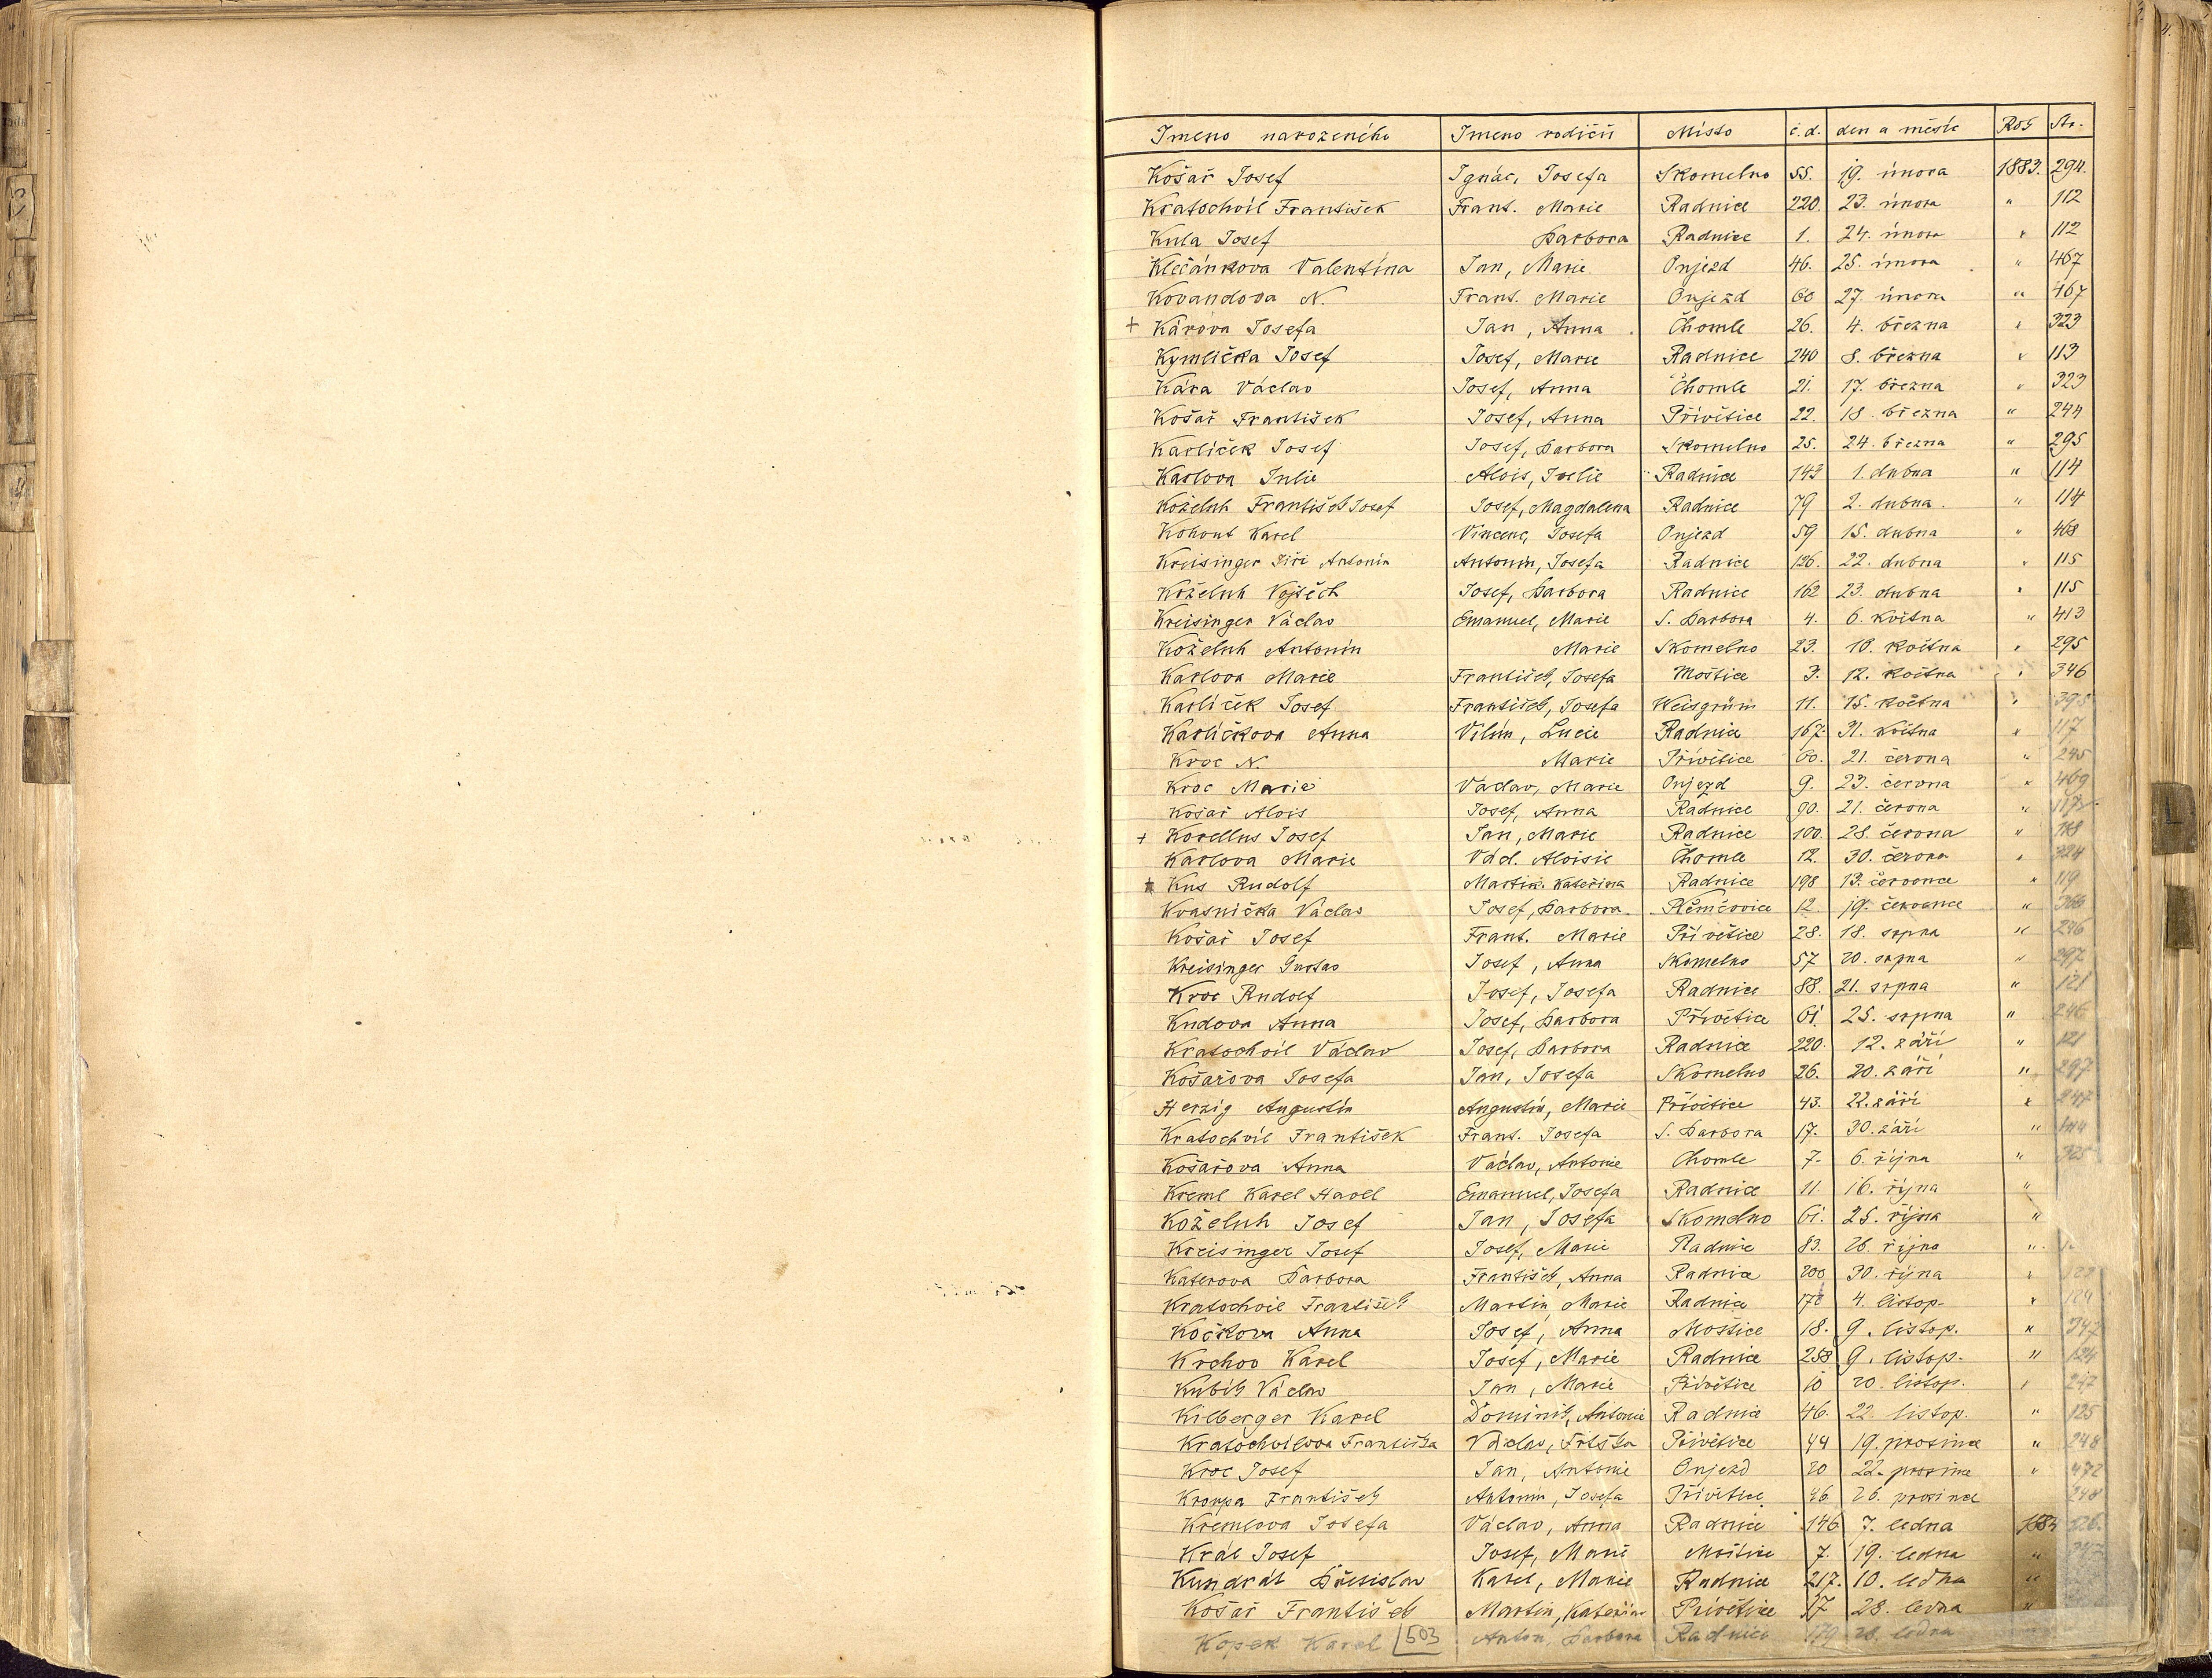 Jmeno narozeného Jmeno rodičů Místo č.d. den a měsíc Rok Str.
Košař Josef Ignác, Josefa Skomelno 55. 19. února 1883. 294.
Kratochvíl František Frant. Marie Radnice 220. 23. února " 112
Kula Josef Barbora Radnice 1. 24. února " 112
Klečánkova Valentína Jan, Marie Oujezd 46. 25. února " 467
Kovandova N. Frant. Marie Oujezd 60 27. února " 467
+ Károva Josefa Jan, Anna Chomle 26. 4. března " 323
Kymlička Josef Josef, Marie Radnice 240 8. března " 113
Kára Václav Josef, Anna Chomle 21. 17. března " 323
Košař František Josef, Anna Přívětice 22. 18. března " 244
Karlíček Josef Josef, Barbora Skomelno 25. 24. března " 295
Karlova Julie Alois, Julie Radnice 143 1. dubna " 114
Koželuh František Josef Josef, Magdalena Radnice 79 2. dubna. " 114
Kohout Karel Vincenc, Josefa Oujezd 59 15. dubna " 468
Kreisinger Jiří Antonín Antonín, Josefa Radnice 126. 22. dubna " 115
Koželuh Vojtěch Josef, Barbora Radnice 162 23. dubna " 115
Kreisinger Václav Emanuel, Marie S. Barbora 4. 6. května " 413
Koželuh Antonín Marie Skomelno 23. 10. května " 295
Karlova Marie František, Josefa Moštice 3. 12. května " 346
Karlíček Josef František, Josefa Weisgrün 11. 15. května " 395
Karlíčkova Anna Vilím, Lucie Radnice 167. 31. května " 117
Kroc N. Marie Přívětice 60. 21. června " 245
Kroc Marie Václav, Marie Oujezd 9. 23. června " 469
Košař Alois Josef, Anna Radnice 90. 21. června "
+ Korellus Josef Jan, Marie Radnice 100. 28. června " 118
Karlova Marie Václ. Aloisie Chomle 12. 30. června " 324
+ Kus Rudolf Martin. Kateřina Radnice 198 13. července " 119
Kvasnička Václav Josef, Barbora. Němčovice 12. 19. července "
Košař Josef Frant. Marie Přívětice 28. 18. srpna " 246
Kreisinger Gustav Josef, Anna Skomelno 57 20. srpna " 297
Kroc Rudolf Josef, Josefa Radnice 88. 21. srpna " 121
Kudova Anna Josef, Barbora Přívětice 61. 25. srpna " 246
Kratochvíl Václav Josef, Barbora Radnice 220. 12. září " 121
Košařova Josefa Jan, Josefa Skomelno 26. 20. září " 297
Herzig Augustin Augustín, Marie Přívětice 43. 22. září " 247
Kratochvíl František Frant. Josefa S. Barbora 17. 30. září "
Košařova Anna Václav, Antonie Chomle 7. 6. října " 325
Kreml Karel Havel Emanuel, Josefa Radnice 11. 16. října "
Koželuh Josef Jan, Josefa Skomelno 61. 25. října "
Kreisinger Josef Josef, Marie Radnice 83. 26. října "
Katerova Barbora František, Anna Radnice 200 30. října "
Kratochvíl František Martin, Marie Radnice 178 4. listop. " 124
Kočkova Anna Josef, Anna Moštice 18. 9. listop. " 347
Krchov Karel Josef, Marie Radnice 258 9. listop. " 124
Kubík Václav Jan, Marie Přívětice 10 20. listop. " 247
Kilberger Karel Dominik, Antonie Radnice 46. 22. listop. " 125
Kratochvílova Františka Václav, Frtška Přívětice 44 19. prosince " 248
Kroc Josef Jan, Antonie Oujezd 20 22. prosince " 472
Kroupa František Antonín, Josefa Přívětice 46 26. prosince 248
Kremlova Josefa Václav, Anna Radnice 146 7. ledna 1884 126.
Král Josef Josef, Marie Moštice 7. 19. ledna "
Kundrát Břetislav Karel, Marie Radnice 217. 10. ledna "
Košař František Martin, Kateřina Přívětice 37 28. ledna "
Kopek Karel 503 Anton, Barbora Radnice 179 28. ledna